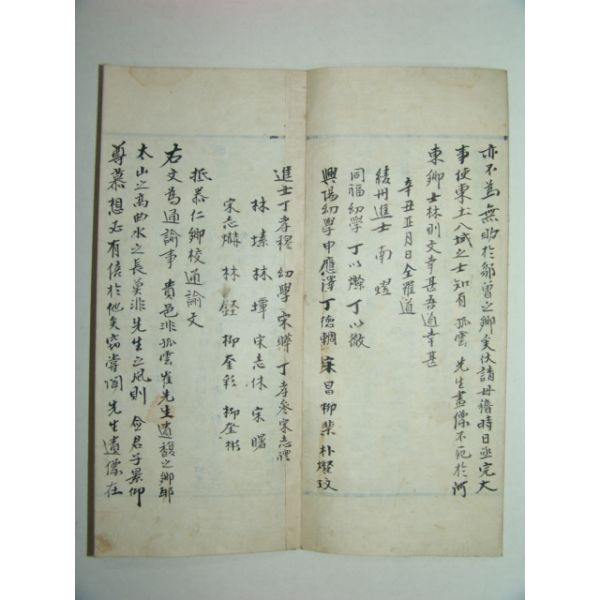 亦不爲無助於鄒魯之鄉矣伏請毋稽時日亟完大
事使東土八域之士知有孤雲先生畫像不死於河
東鄉士林則文幸甚吾道幸甚
辛丑正月日全羅道
綾州進士南熤
同福幼學丁以燦丁以敬
興陽幼學申應澤丁德輖宋昌柳棐朴燦玟
進士丁孝穆幼學宋驊丁孝參宋志禮
林塐林墰宋志休宋曙
宋志爀林鋞柳奎彩柳奎彬
抵泰仁鄉校通諭文
右文爲通諭事貴邑非孤雲崔先生遺馥之鄉耶
太山之高曲水之長莫非先生之風則僉君子景仰
尊慕想必有倍於他矣竊嘗聞先生遺像在